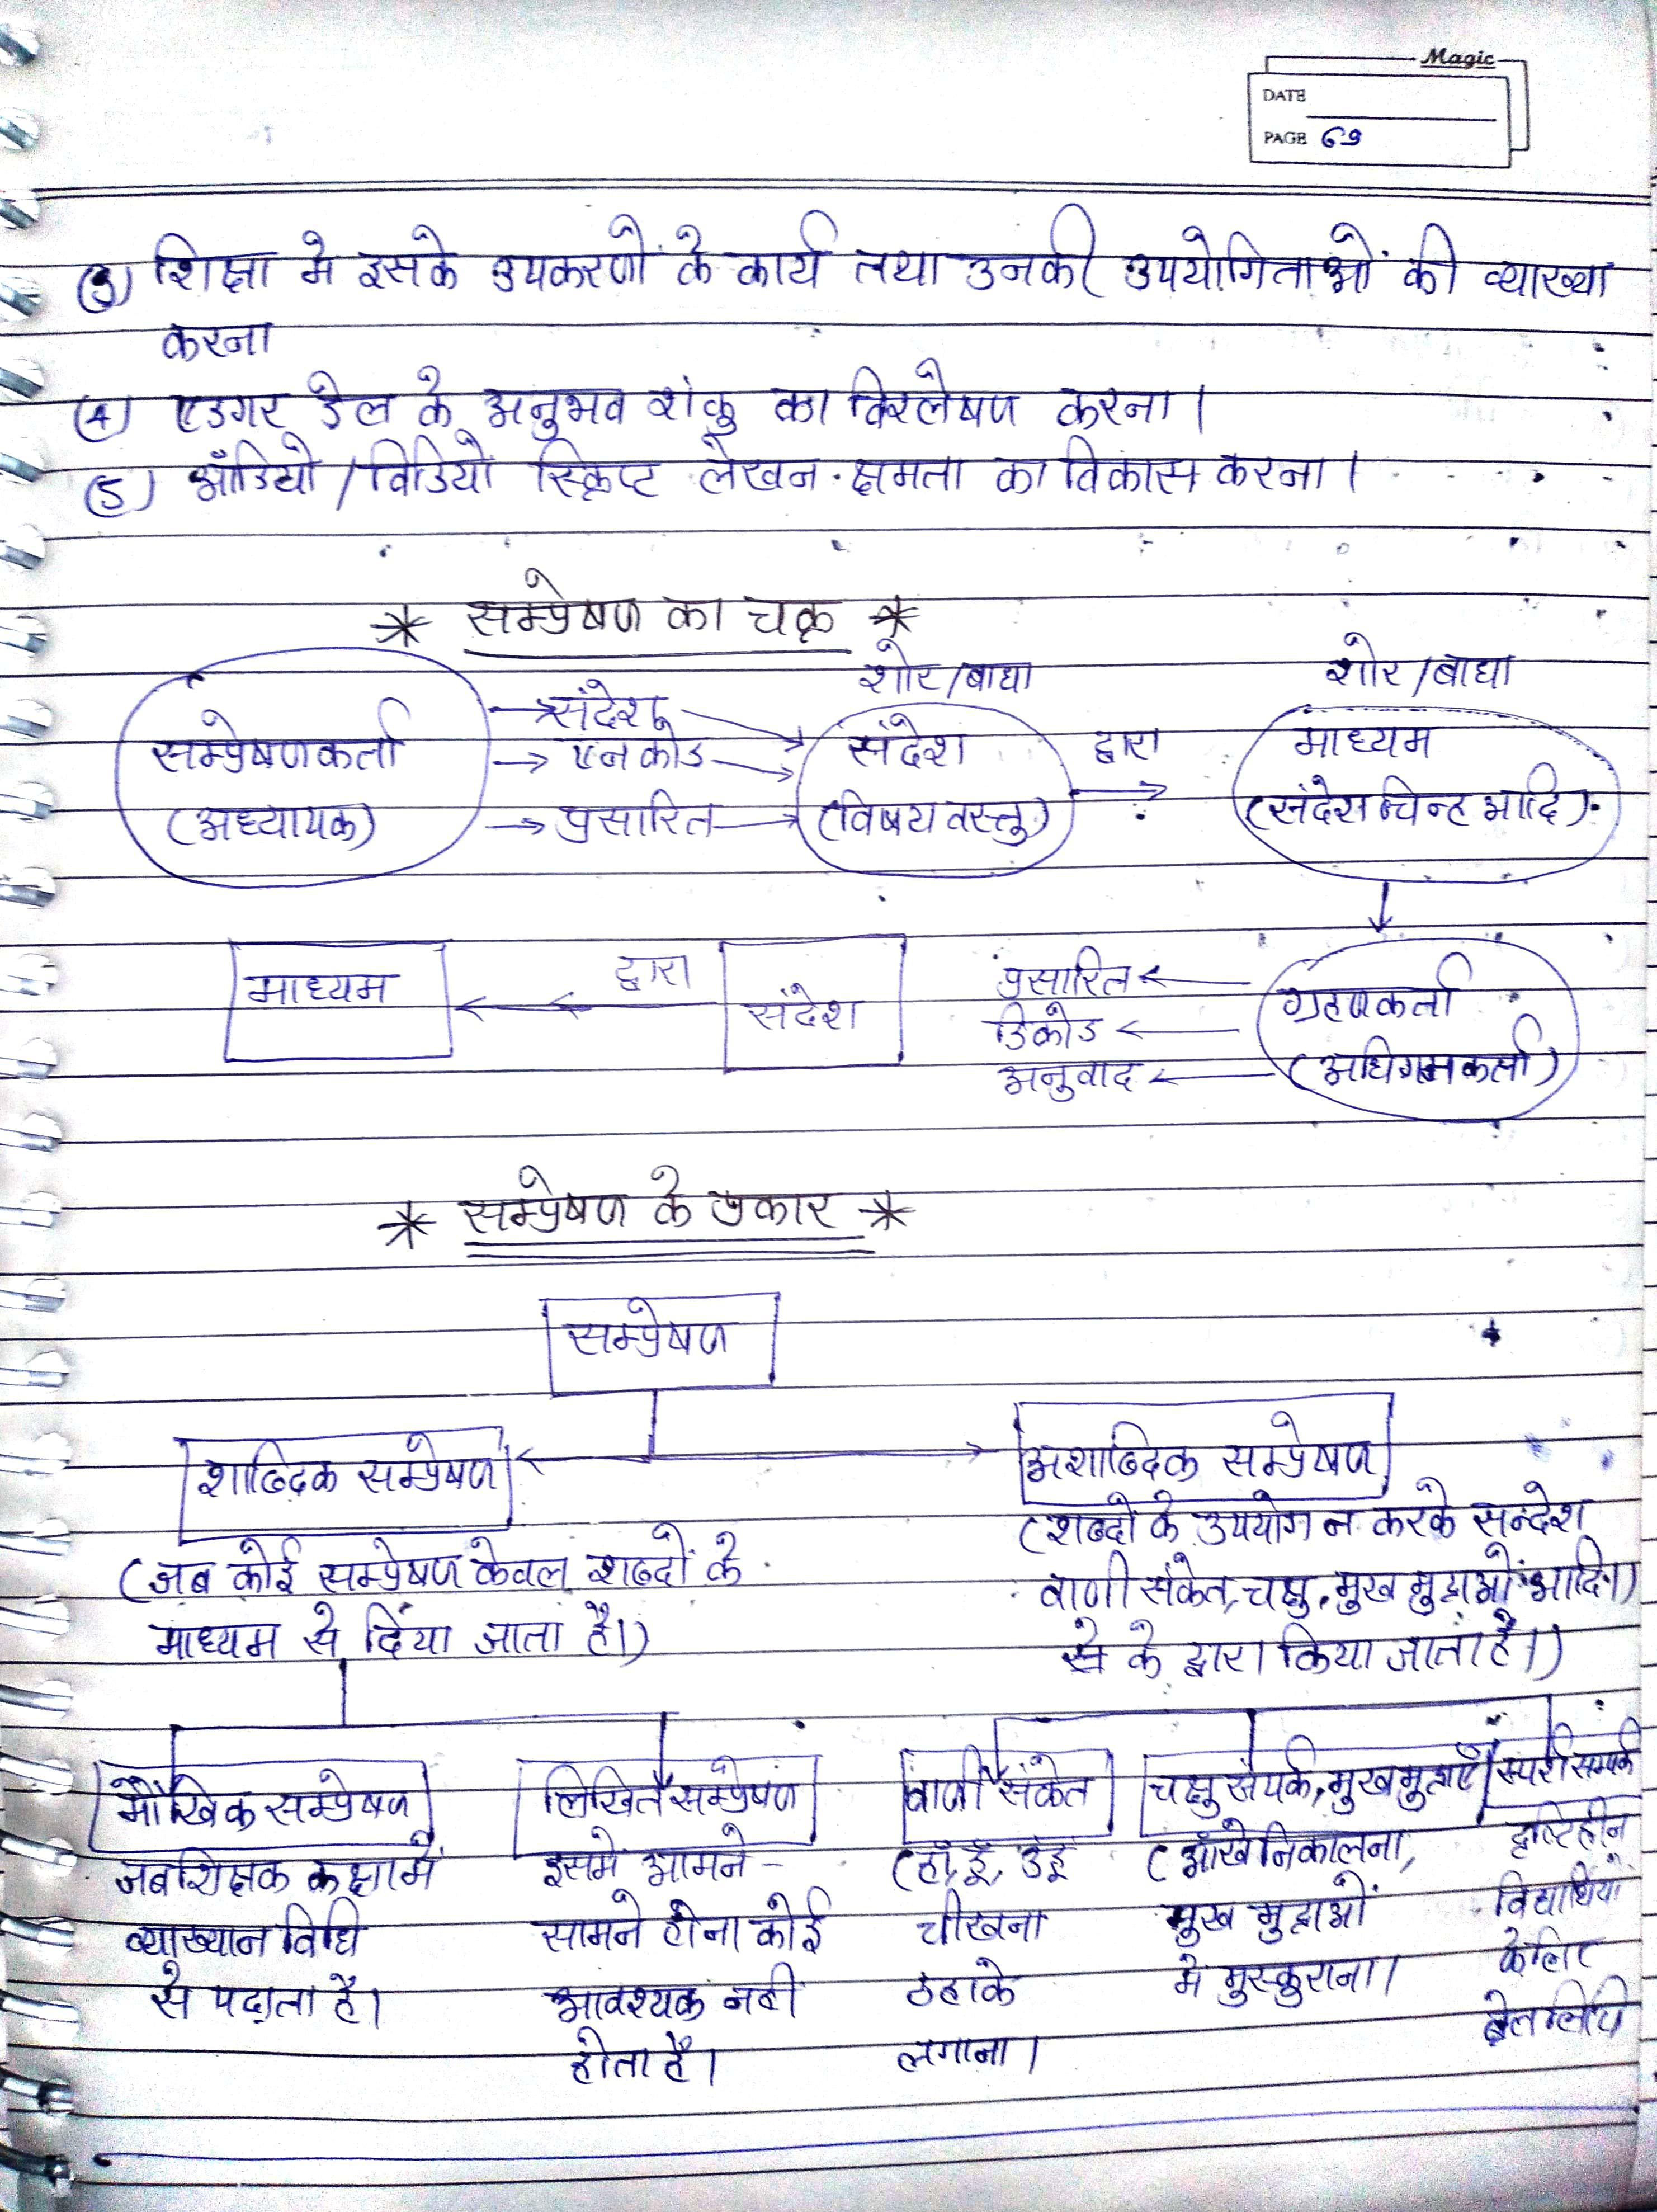 Magic
DATE
PAGE 69
(3) शिक्षा मे इसके उपकरणों के कार्य तथा उनकी उपयोगिताओं की व्याख्या
करना
(4) एडगर डेल के अनुभव शंकु का विश्लेषण करना।
(5) ऑडियो / विडियो स्क्रिप्ट लेखन क्षमता का विकास करना।
* सम्प्रेषण का चक्र *
शोर/बाधा शोर/बाधा
सम्प्रेषणकर्ता → संदेश → संदेश द्वारा माध्यम
→ एनकोड →
(अध्यापक) → प्रसारित → (विषय वस्तु) → (संदेश चिन्ह आदि)
माध्यम द्वारा संदेश प्रसारित ← ग्रहणकर्ता
डिकोड ←
अनुवाद ← (अधिगमकर्ता)
* सम्प्रेषण के प्रकार *
सम्प्रेषण
शाब्दिक सम्प्रेषण अशाब्दिक सम्प्रेषण
(जब कोई सम्प्रेषण केवल शब्दों के
माध्यम से दिया जाता है।)
(शब्दों के उपयोग न करके सन्देश
वाणी संकेत, चक्षु, मुख मुद्राओं आदि।)
के द्वारा किया जाता है।)
मौखिक सम्प्रेषण
जब शिक्षक कक्षा में
व्याख्यान विधि
से पढ़ाता है।
लिखित सम्प्रेषण
इसमे आमने -
सामने होना कोई
आवश्यक नही
होता है।
वाणी संकेत
(हाँ, हूँ, उहू
चीखना
ठहाके
लगाना।
चक्षु संपर्क, मुख मुद्राएँ
(आँखे निकालना,
मुख मुद्राओं
मे मुस्कुराना।
स्पर्श सम्पर्क
दृष्टिहीन
विद्यार्थियों
के लिए
ब्रेल लिपि